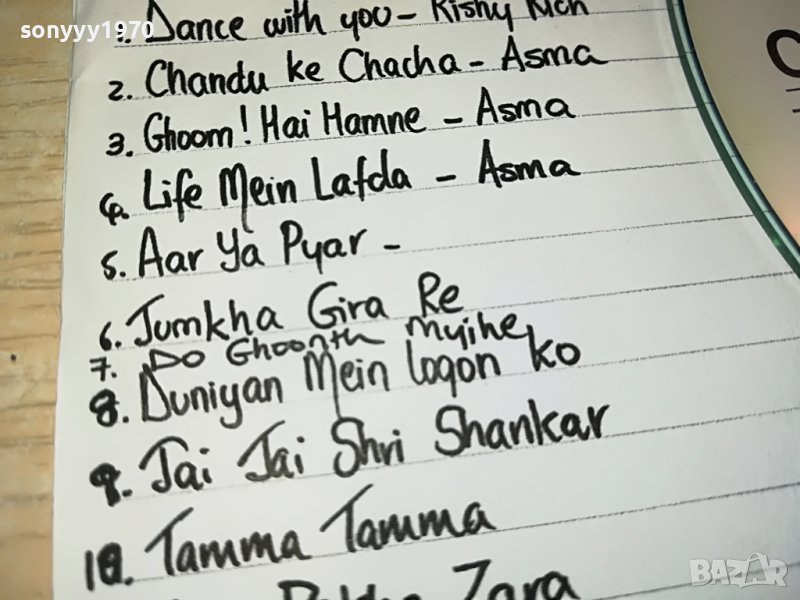 sonyyy1970
1. Dance with you - Rishy Rich
2. Chandu ke Chacha - Asma
3. Ghoom! Hai Hamne - Asma
4. Life Mein Lafda - Asma
5. Aar Ya Pyar -
6. Jumkha Gira Re
7. Do Ghoonth Mujhe
8. Duniyan Mein logon ko
9. Jai Jai Shri Shankar
10. Tamma Tamma
Zara
BAZAR